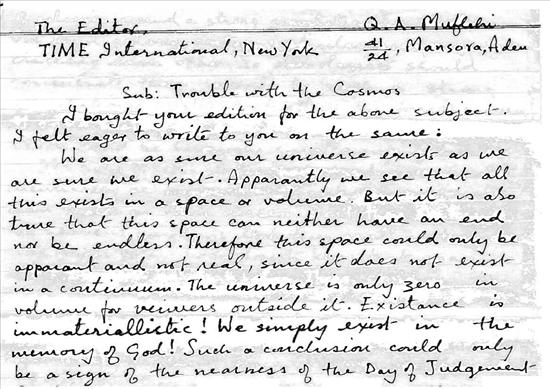 The Editor,
TIME International, New York
Q. A. Muflehi
41/24, Mansora, Aden
Sub: Trouble with the Cosmos
I bought your edition for the above subject.
I felt eager to write to you on the same:
We are as sure our universe exists as we
are sure we exist. Apparantly we see that all
this exists in a space or volume. But it is also
true that this space can neither have an end
nor be endless. Therefore this space could only be
apparant and not real, since it does not exist
in a continuum. The universe is only zero in
volume for veiwers outside it. Existance is
immateriallistic! We simply exist in the
memory of God! Such a conclusion could only
be a sign of the nearness of the Day of Judgement